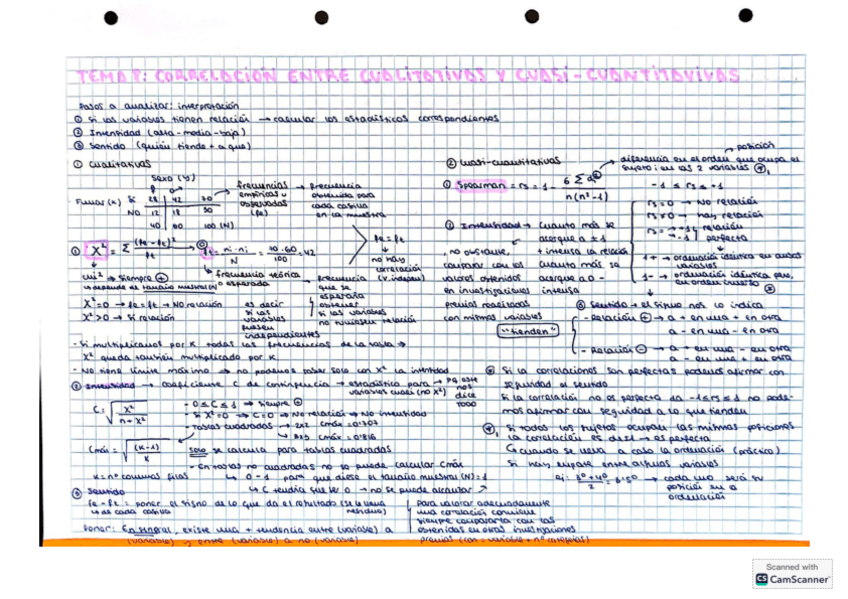 TEMA 8: CORRELACIÓN ENTRE CUALITATIVAS Y CUASI-CUANTITAVIVAS
Pasos a analizar: interpretación
① Si las variables tienen relación → calcular los estadísticos correspondientes
② Intensidad (alta-media-baja)
③ Sentido (quién tiende + a que)
① Cualitativas
Sexo (Y)
Fumar (X) Sí 28 42 70
NO 12 18 30
40 60 100 (N)
frecuencias empíricas u observadas (fe)
→ frecuencia obtenida para cada casilla en la muestra
① X² = Σ (fe - ft)² / ft
ft = ni · nj / N = 70 · 60 / 100 = 42
fe = ft
no hay correlación (v. indepen)
→ frecuencia teórica o esperada
→ frecuencia que se esperaría obtener si las variables no tuviesen relación
→ siempre ⊕
→ depende el tamaño muestral (N)
X² = 0 → fe = ft → NO relación
X² > 0 → Sí relación
es decir si las variables fuesen independientes
- Si multiplicamos por K todas las frecuencias de la tabla →
X² queda también multiplicado por K
- No tiene límite máximo → no podemos saber solo con X² la intensidad
② Intensidad → coeficiente C de contingencia → estadístico para variables cuali (no X²)
→ pq este nos dice todo
C = √ X² / n + X²
- 0 ≤ C ≤ 1 → siempre ⊕
- Si X² = 0 → C = 0 → No relación → No intensidad
- Tablas cuadradas → 2x2 Cmáx = 0'707
→ 3x3 Cmáx = 0'816
Cmáx = √ (K-1) / K
solo se calcula para tablas cuadradas
- En tablas no cuadradas no se puede calcular Cmáx
K = nº columnas filas
→ C tendría que ser 0 → no se puede alcanzar
③ Sentido
fe - ft = poner el signo de lo que da el resultado
→ de cada casilla
Poner: En general, existe una + tendencia entre (variable) a
(variable) y entre (variable) a no (variable)
para valorar adecuadamente
una correlación conviene
siempre compararla con las
obtenidas en otras investigaciones
previas (con = variable + nº categorías)
② Cuasi-cuantitativas
① Spearman = rs = 1 - 6 Σ d² / n(n²-1)
→ posición
diferencia en el orden que ocupa el
sujeto i en las 2 variables
rs = 0 → No relación
rs ≠ 0 → hay relación
rs = +1 -1 relación perfecta
1+ → ordenación idéntica en ambas variables
1- → ordenación idéntica pero, en orden inverso
② Intensidad → Cuanto más se
acerque a ± 1
+ intensa la relación
cuanto más se
acerque a 0 -
intensa
, no obstante,
comparar con los
valores obtenidos
en investigaciones
previas realizadas
con mismas variables
③ Sentido → el signo nos lo indica
"tienden"
- Relación ⊕ → a + en una + en otra
a - en una - en otra
- Relación ⊖ → a + en una - en otra
a - en una + en otra
Si la correlaciones son perfectas podemos afirmar con
seguridad el sentido
Si la correlación no es perfecta da -1≤rs≤1 no pode-
mos afirmar con seguridad a lo que tienden
Si todos los sujetos ocupan las mismas posiciones
la correlación es → es perfecta
cuando se lleva a cabo la ordenación (práctico)
Si hay empate entre algunas variables
ej: 3º + 4º / 2 = 3'5º → cada uno será su
posición en la
ordenación
Scanned with
CS CamScanner